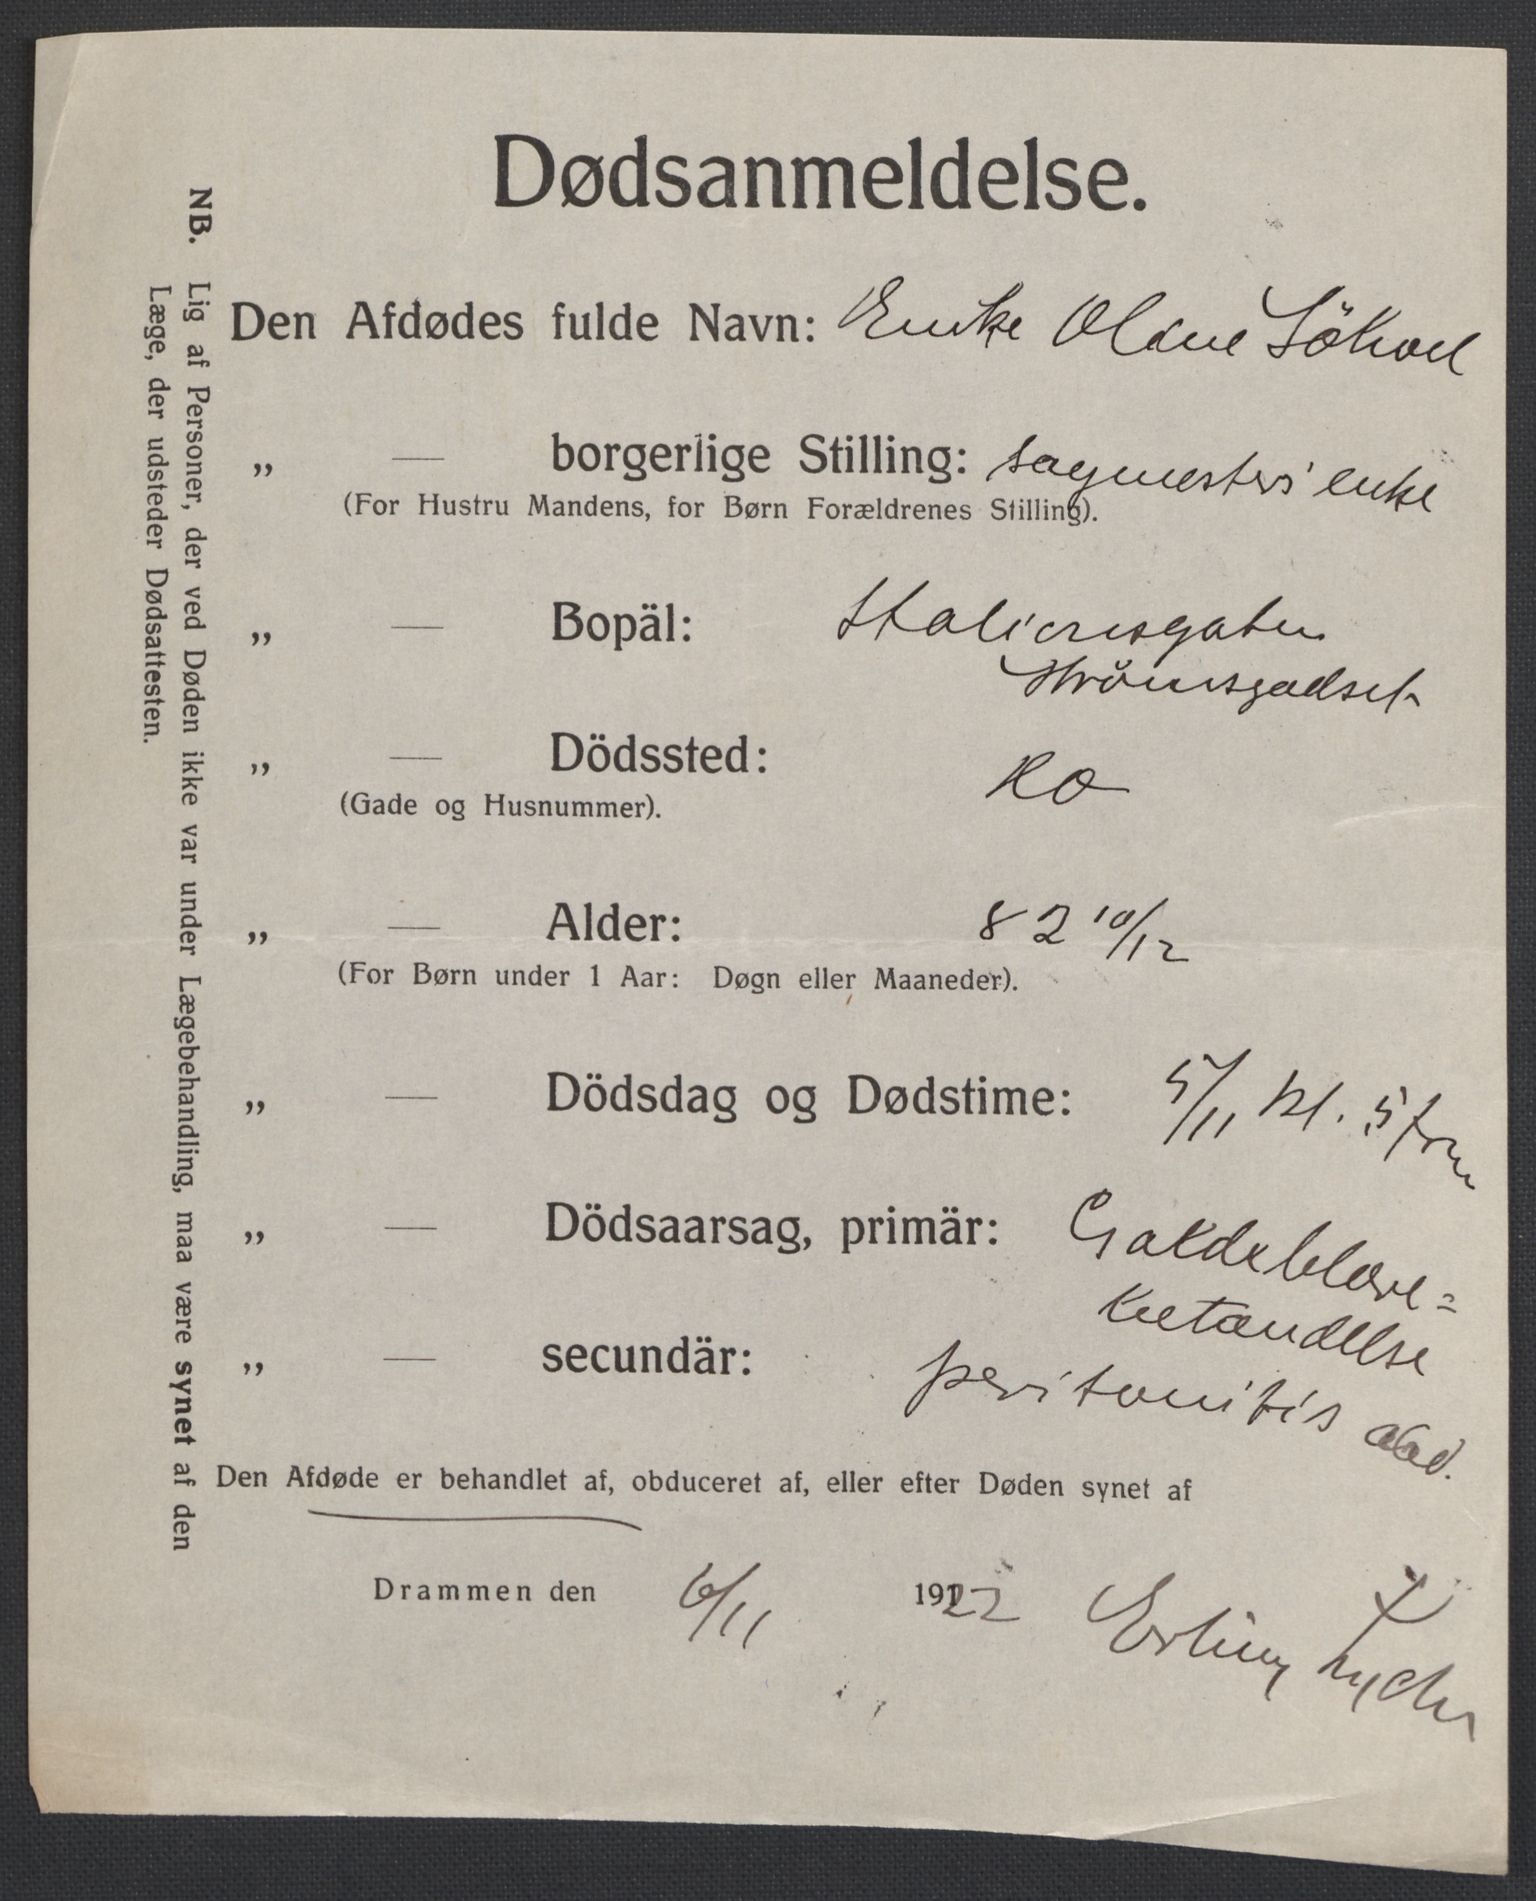 Dødsanmeldelse.
Den Afdødes fulde Navn: Enke Oline Sökvel
„ — borgerlige Stilling: sagmesters enke
(For Hustru Mandens, for Børn Forældrenes Stilling).
„ — Bopäl: Stationsgaten
Strömsgodset
„ — Dödssted: Do
(Gade og Husnummer).
„ — Alder: 82 10/12
(For Børn under 1 Aar: Døgn eller Maaneder).
„ — Dödsdag og Dødstime: 5/11 kl. 5 fm
„ — Dödsaarsag, primär: Galdeblære-
betændelse
„ — secundär: peritonitis
Den Afdøde er behandlet af, obduceret af, eller efter Døden synet af
Drammen den 6/11 1922 Erling
NB. Lig af Personer, der ved Døden ikke var under Lægebehandling, maa være synet af den
Læge, der udsteder Dødsattesten.